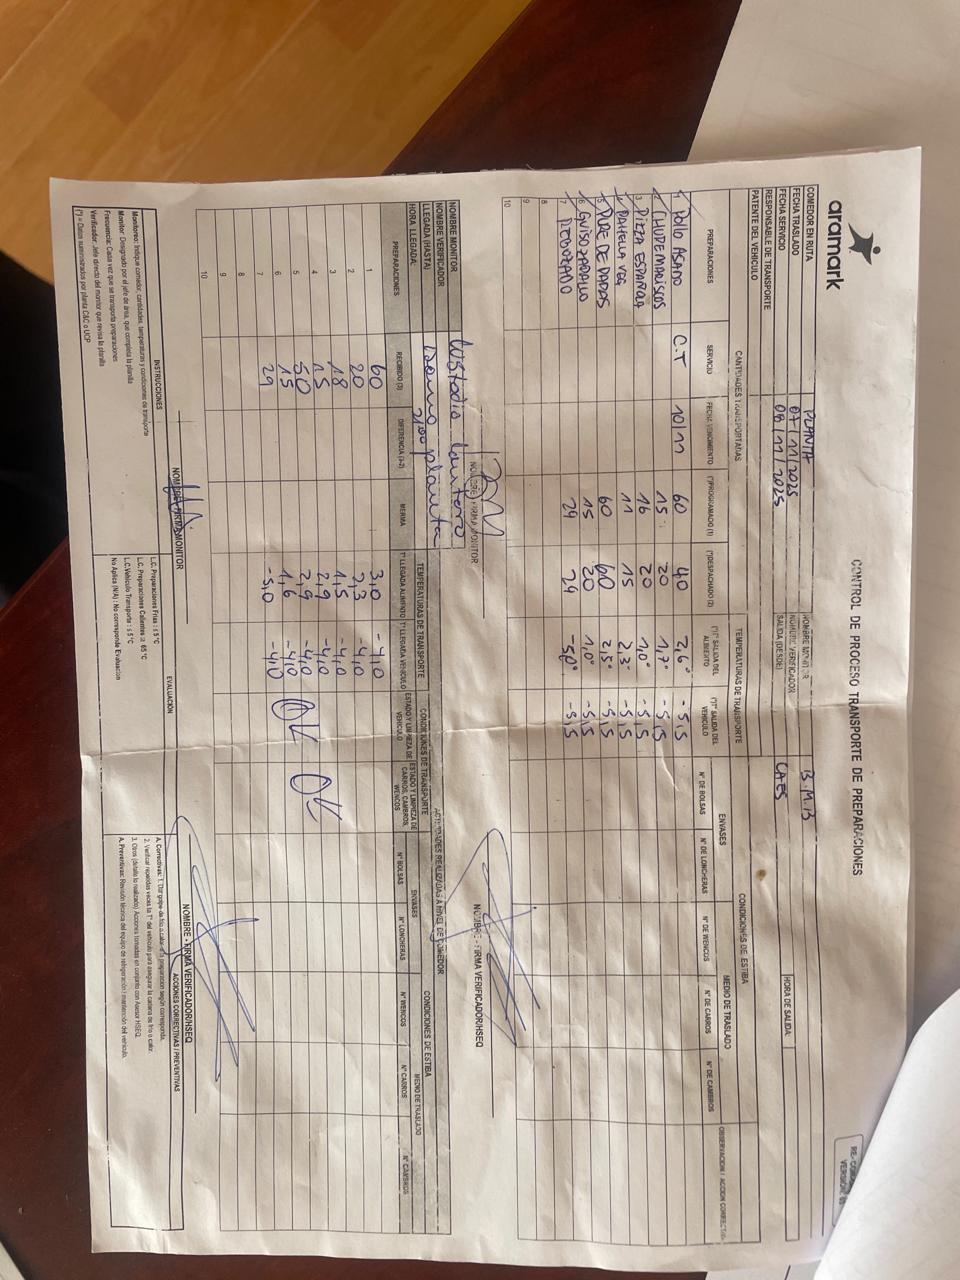 aramark
CONTROL DE PROCESO TRANSPORTE DE PREPARACIONES
COMEDOR EN RUTA PLANTA NOMBRE MONITOR B.M.B
FECHA TRASLADO 07/11/2025 NOMBRE VERIFICADOR HORA DE SALIDA:
FECHA SERVICIO 08/11/2025 SALIDA (DESDE) CAES
RESPONSABLE DE TRANSPORTE
PATENTE DEL VEHICULO
CANTIDADES TRANSPORTADAS TEMPERATURAS DE TRANSPORTE CONDICIONES DE ESTIBA
ENVASES MEDIO DE TRASLADO
PREPARACIONES SERVICIO FECHA VENCIMIENTO (*)PROGRAMADO (1) (*)DESPACHADO (2) (*)T° SALIDA DEL ALIMENTO (*)T° SALIDA DEL VEHICULO N° DE BOLSAS N° DE LONCHERAS N° DE WENCOS N° DE CARROS N° DE CAMBROS
1 POLLO ASADO C.T 10/11 60 40 2,6° -5,5
2 CHUPE MARISCOS 15 20 1,7° -5,5
3 PIZZA ESPAÑOLA 16 20 1,0° -5,5
4 VEG 11 15 2,3° -5,5
5 PURE DE PAPAS 60 60 2,5° -5,5
6 GUISO ZAPALLO 15 20 1,0° -5,5
7 29 24 -5,0° -5,5
8
9
10
NOMBRE - FIRMA MONITOR NOMBRE - FIRMA VERIFICADOR/HSEQ
NOMBRE MONITOR
NOMBRE VERIFICADOR
LLEGADA (HASTA) planta
HORA LLEGADA:
ACTIVIDADES REALIZADAS A NIVEL DE COMEDOR
TEMPERATURAS DE TRANSPORTE CONDICIONES DE TRANSPORTE CONDICIONES DE ESTIBA
ENVASES MEDIO DE TRASLADO
PREPARACIONES RECIBIDO (3) DIFERENCIA (3-2) MERMA T° LLEGADA ALIMENTO T° LLEGADA VEHICULO ESTADO Y LIMPIEZA DE VEHICULO ESTADO Y LIMPIEZA DE CARROS, CAMBROS, WENCOS N° BOLSAS N° LONCHERAS N° WENCOS N° CARROS N° CAMBROS
1 60 3,0 -4,0
2 20 2,3 -4,0
3 18 1,5 -4,0
4 15 2,9 -4,0
5 50 2,9 -4,0 OK OK
6 15 1,6 -4,0
7 29 -5,0 -4,0
8
9
10
NOMBRE - FIRMA MONITOR NOMBRE - FIRMA VERIFICADOR/HSEQ
INSTRUCCIONES EVALUACIÓN ACCIONES CORRECTIVAS / PREVENTIVAS
Monitoreo: Indique comedor, cantidades, temperaturas y condiciones de transporte
Monitor: Designado por el jefe de área, que completa la planilla
Frecuencia: Cada vez que se transporta preparaciones
Verificador: Jefe directo del monitor que revisa la planilla
(*) = Datos suministrados por planta C&C o UCP
L.C. Preparaciones Frías : ≤ 5 °C
L.C. Preparaciones Calientes ≥ 65 °C
L.C. Vehículo Transporte : ≤ 5 °C
No Aplica (N/A) : No corresponde Evaluación
A. Correctivas: 1. Dar golpe de frío o calor a la preparación según corresponda.
2. Verificar repetidas veces la T° del vehículo para asegurar la cadena de frío o calor.
3. Otros (detalle lo realizado) Acciones tomadas en conjunto con Asesor HSEQ.
A. Preventivas: Revisión técnica del equipo de refrigeración / mantención del vehículo.